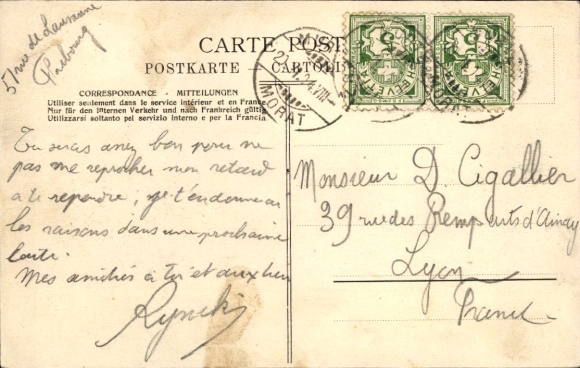 57 rue de Lausanne
Fribourg
CARTE POST
POSTKARTE — CARTOL
CORRESPONDANCE - MITTEILUNGEN
Utiliser seulement dans le service intérieur et en France
Nur für den internen Verkehr und nach Frankreich gültig
Utilizzarsi soltanto pel servizio interno e per la Francia
MORAT
HELVETIA
HELVETIA
Tu seras assez bon pour ne
pas me reprocher mon retard
à te répondre, je t'en donnerai
les raisons dans une prochaine
carte.
Mes amitiés à toi et aux tiens
Monsieur D. Cigallier
39 rue des Remparts d'Ainay
Lyon
France